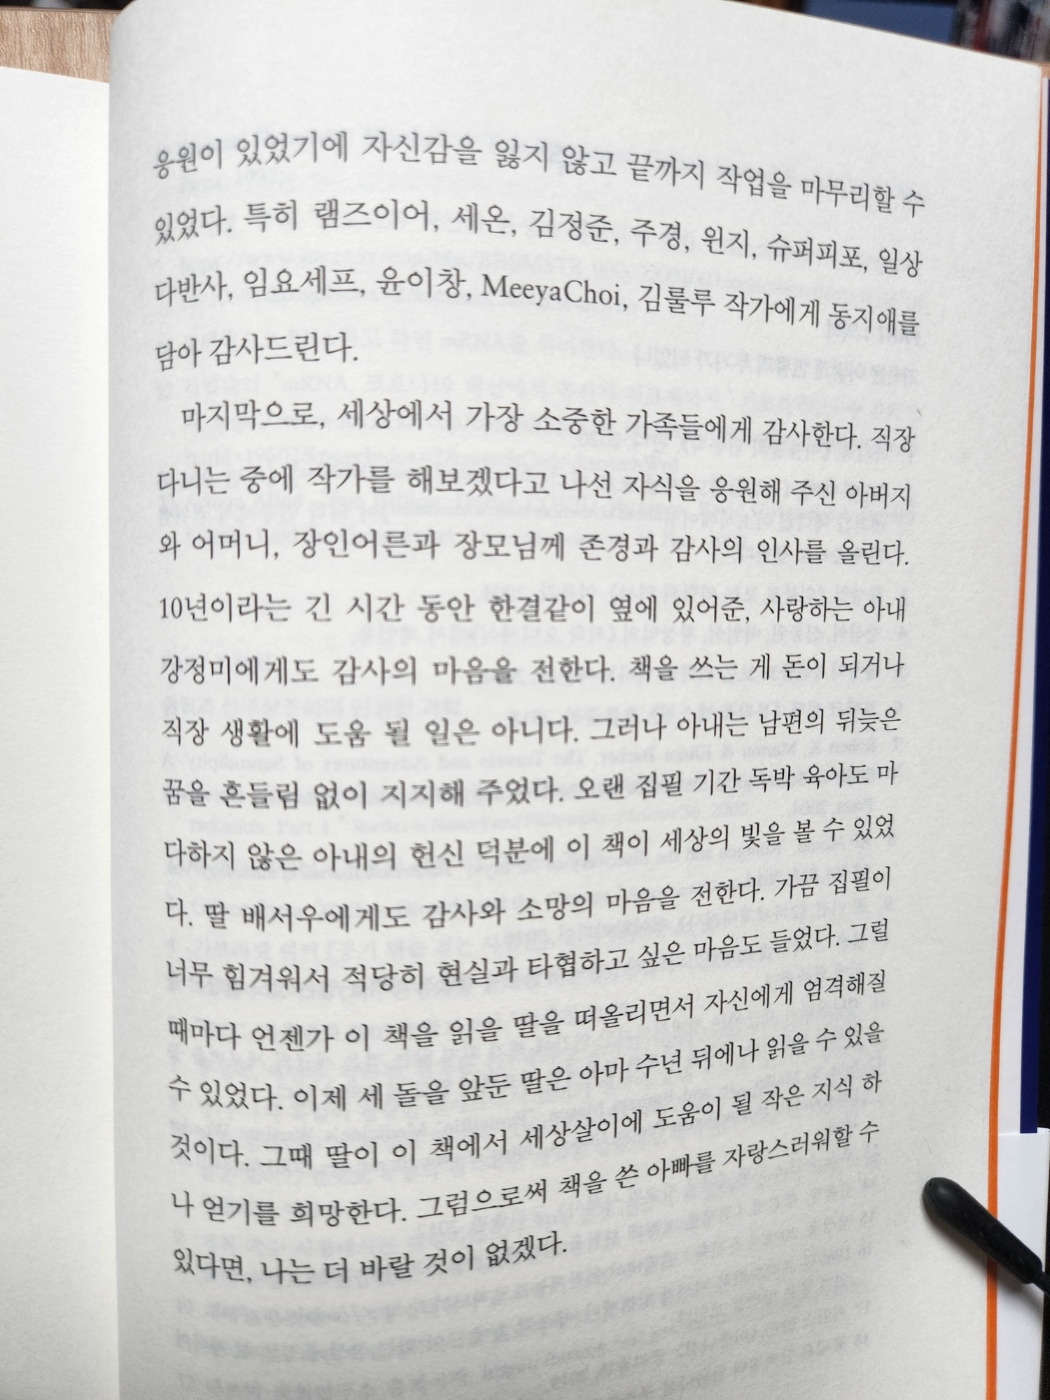 응원이 있었기에 자신감을 잃지 않고 끝까지 작업을 마무리할 수
있었다. 특히 램즈이어, 세온, 김정준, 주경, 윈지, 슈퍼피포, 일상
다반사, 임요세프, 윤이창, MeeyaChoi, 김룰루 작가에게 동지애를
담아 감사드린다.
마지막으로, 세상에서 가장 소중한 가족들에게 감사한다. 직장
다니는 중에 작가를 해보겠다고 나선 자식을 응원해 주신 아버지
와 어머니, 장인어른과 장모님께 존경과 감사의 인사를 올린다.
10년이라는 긴 시간 동안 한결같이 옆에 있어준, 사랑하는 아내
강정미에게도 감사의 마음을 전한다. 책을 쓰는 게 돈이 되거나
직장 생활에 도움 될 일은 아니다. 그러나 아내는 남편의 뒤늦은
꿈을 흔들림 없이 지지해 주었다. 오랜 집필 기간 독박 육아도 마
다하지 않은 아내의 헌신 덕분에 이 책이 세상의 빛을 볼 수 있었
다. 딸 배서우에게도 감사와 소망의 마음을 전한다. 가끔 집필이
너무 힘겨워서 적당히 현실과 타협하고 싶은 마음도 들었다. 그럴
때마다 언젠가 이 책을 읽을 딸을 떠올리면서 자신에게 엄격해질
수 있었다. 이제 세 돌을 앞둔 딸은 아마 수년 뒤에나 읽을 수 있을
것이다. 그때 딸이 이 책에서 세상살이에 도움이 될 작은 지식 하
나 얻기를 희망한다. 그럼으로써 책을 쓴 아빠를 자랑스러워할 수
있다면, 나는 더 바랄 것이 없겠다.